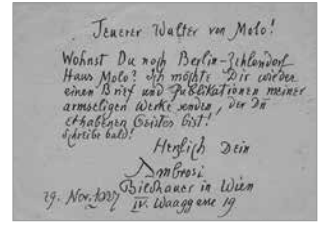 Teuerer Walter von Molo!
Wohnst Du noch Berlin-Zehlendorf
Haus Molo? Ich möchte Dir wieder
einen Brief und Publikationen meiner
armseligen Werke senden, der Du
erhabenen Geistes bist!
Schreibe bald!
Herzlich Dein
Ambrosi
Bildhauer in Wien
29. Nov. IV. Waaggasse 19